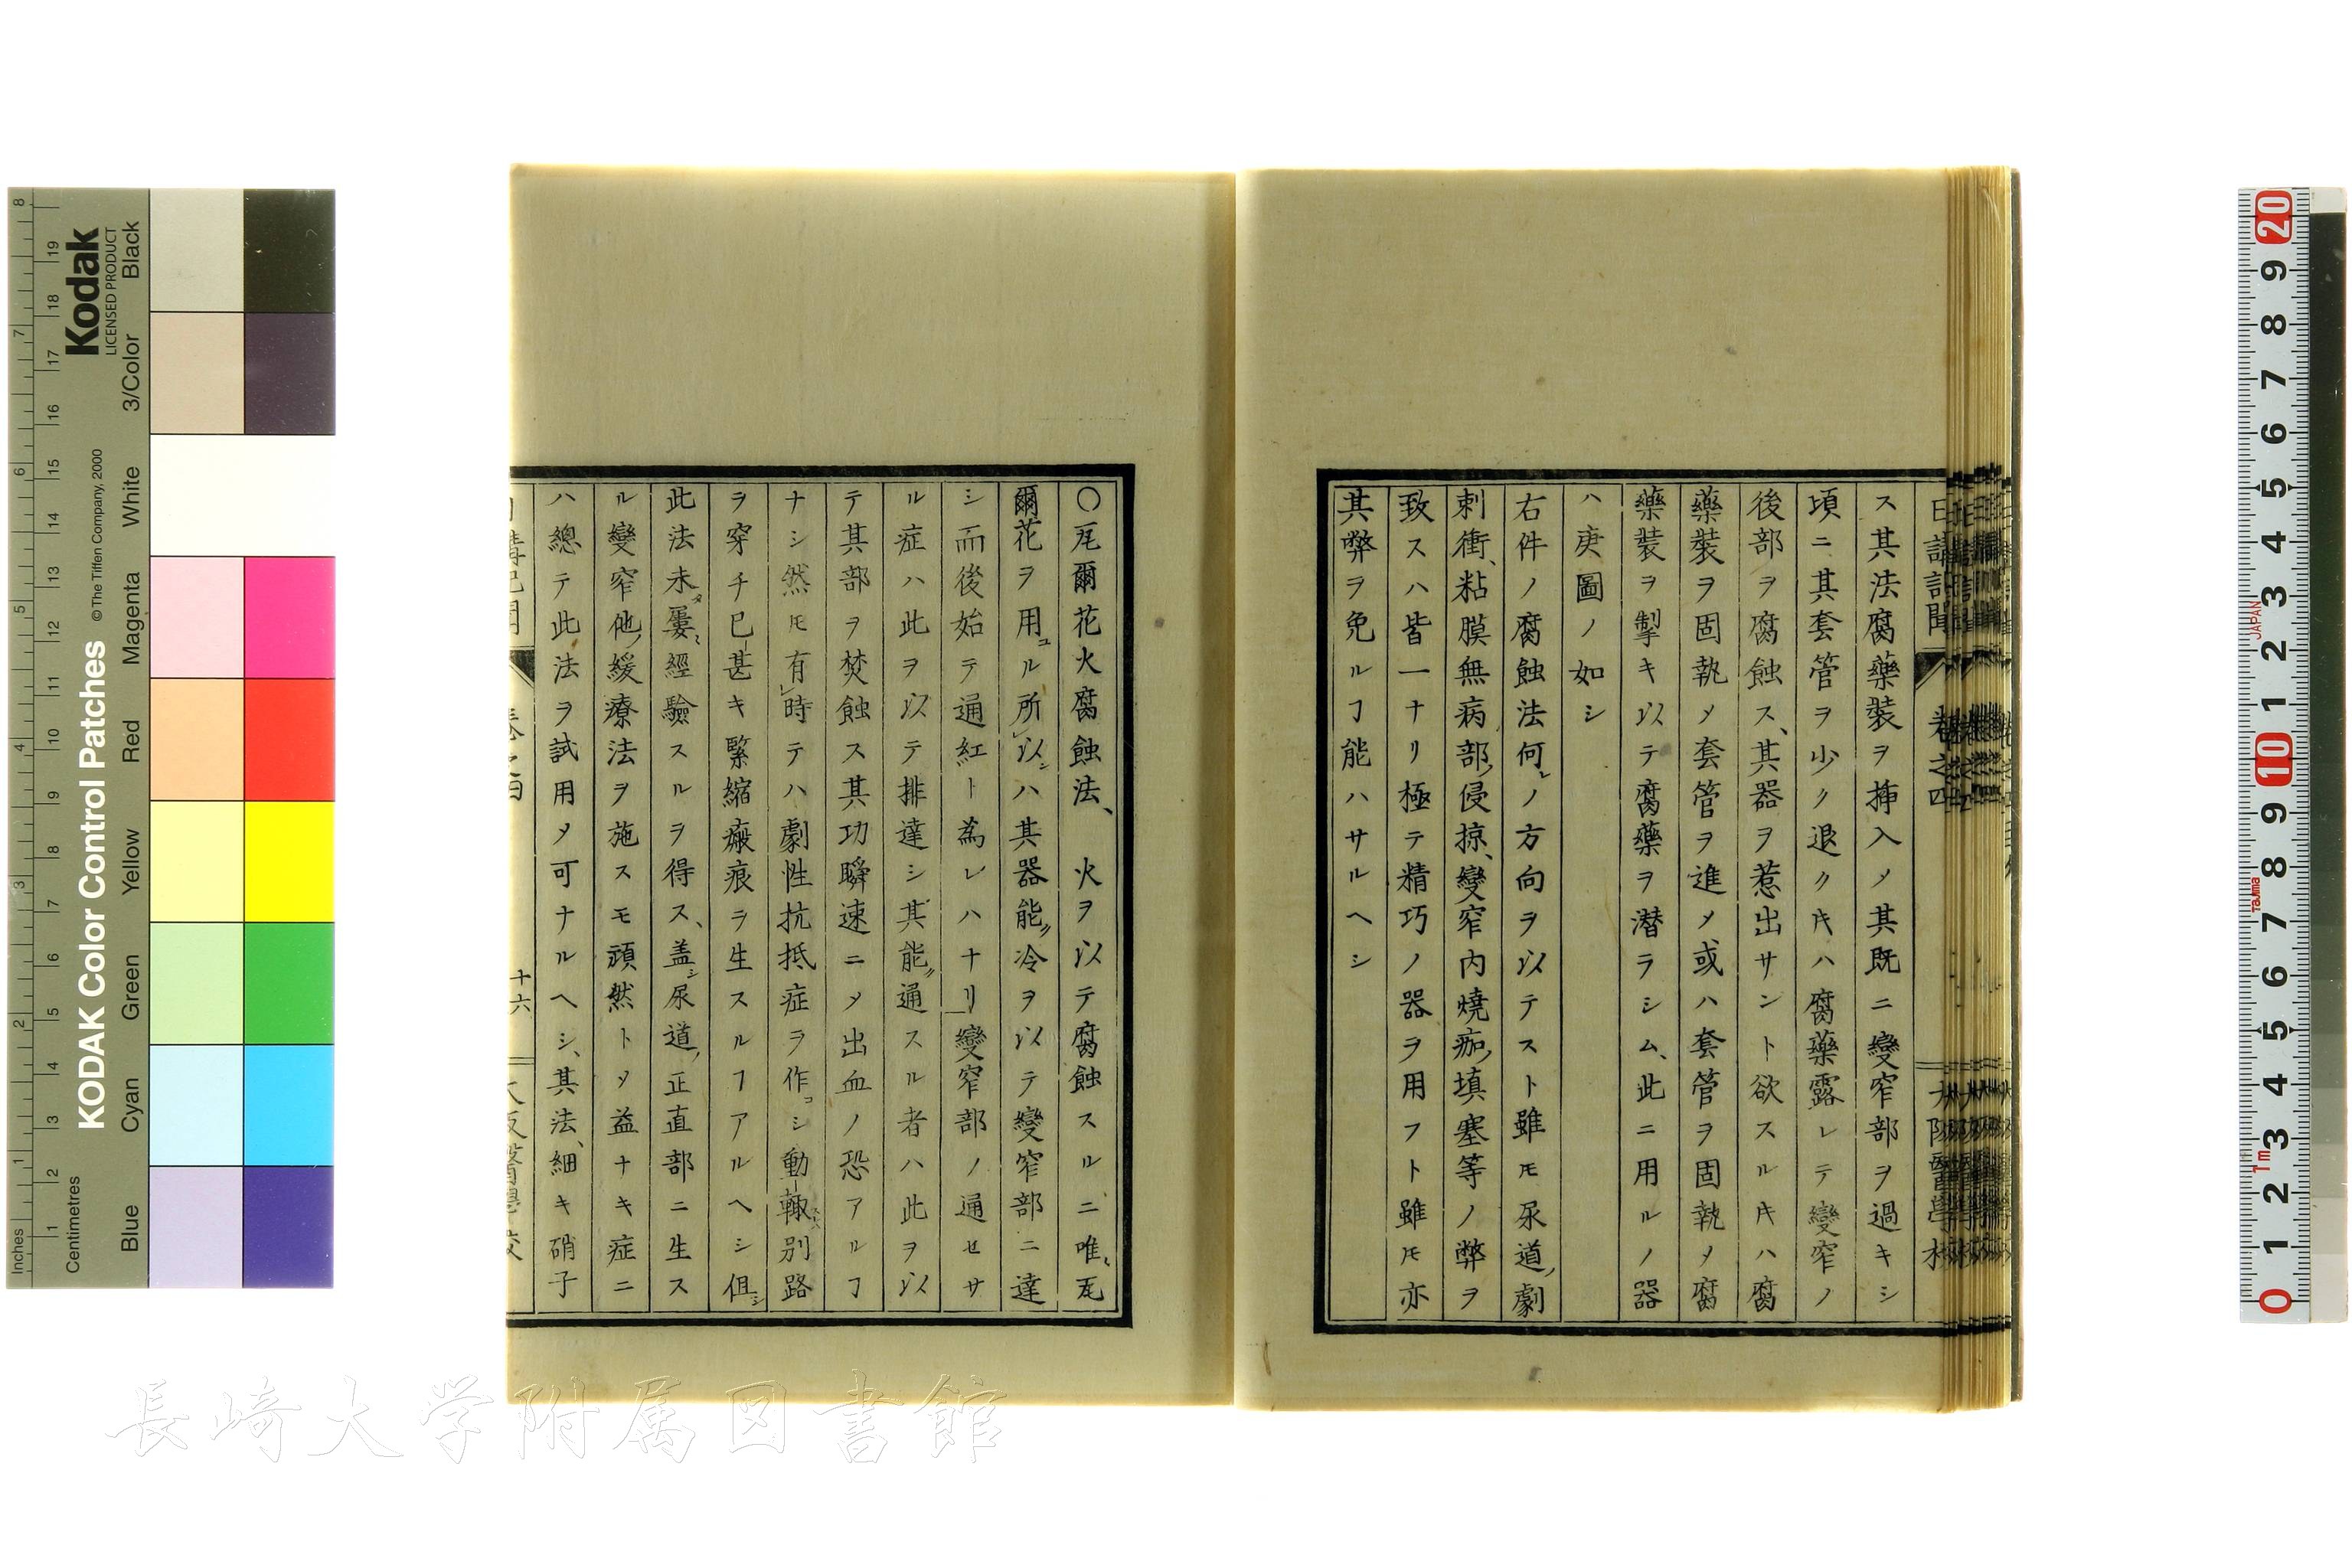 日講記聞 卷之四 大阪醫學校
ス其法腐藥裝ヲ揷入メ其既ニ變窄部ヲ過キシ
頃ニ其套管ヲ少ク退クキハ腐藥露レテ變窄ノ
後部ヲ腐蝕ス、其器ヲ惹出サント欲スルキハ腐
藥裝ヲ固執メ套管ヲ進メ或ハ套管ヲ固執メ腐
藥裝ヲ掣キ以テ腐藥ヲ潜ラシム、此ニ用ルノ器
ハ庚圖ノ如シ
右件ノ腐蝕法何レノ方向ヲ以テスト雖モ尿道ノ劇
刺衝、粘膜無病部ノ侵掠、變窄内燒痂ノ填塞等ノ弊ヲ
致スハ皆一ナリ極テ精巧ノ器ヲ用フト雖モ亦
其弊ヲ免ルヿ能ハサルヘシ
〇瓦爾花火腐蝕法、 火ヲ以テ腐蝕スルニ唯瓦
爾花ヲ用ユル所以ハ其器能冷ヲ以テ變窄部ニ達
シ而後始テ通紅ト爲レハナリ變窄部ノ通セサ
ル症ハ此ヲ以テ排達シ其能通スル者ハ此ヲ以
テ其部ヲ焚蝕ス其功瞬速ニメ出血ノ恐アルヿ
ナシ然モ有時テハ劇性抗抵症ヲ作シ動輙別路
ヲ穿チ已甚キ緊縮瘢痕ヲ生スルヿアルヘシ但シ
此法未タ屢經驗スルヲ得ス、盖シ尿道ノ正直部ニ生ス
ル變窄他ノ緩療法ヲ施スモ頑然トメ益ナキ症ニ
ハ總テ此法ヲ試用メ可ナルヘシ、其法、細キ硝子
日講記聞 卷之四 十六 大阪醫學校
長崎大学附属図書館
KODAK Color Control Patches
©The Tiffen Company, 2000
Kodak
LICENSED PRODUCT
Inches
Centimetres
Blue Cyan Green Yellow Red Magenta White 3/Color Black
JAPAN
Tajima
1m